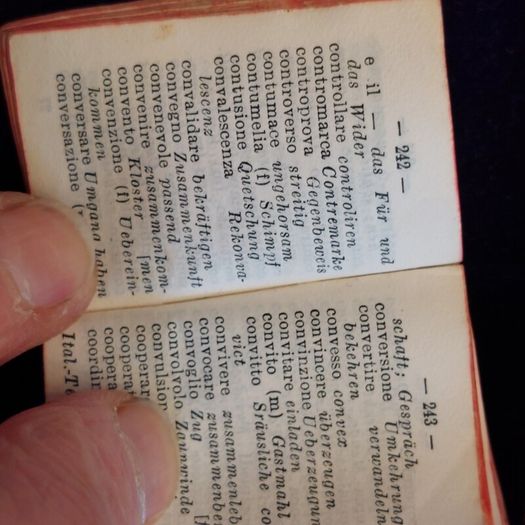 — 242 —
e il — das Für und
das Wider
controllare controliren
contromarca Contremarke
controprova Gegenbeweis
controverso streitig
contumace ungehorsam
contumelia (f) Schimpf
contusione Quetschung
convalescenza Rekonva-
lescenz
convalidare bekräftigen
convegno Zusammenkunft
convenevole passend
convenire zusammenkom-
convento Kloster [men
convenzione (f) Ueberein-
kommen
conversare Umgang haben
conversazione
— 243 —
schaft; Gespräch
conversione Umkehrung
convertire verwandeln
bekehren
convesso convex
convincere überzeugen
convinzione
convitare einladen
convito (m) Gastmahl
convitto
vict
convivere
convocare
convoglio Zug
convolvolo Zaunwinde
convulsion
cooperar
cooperat
cooperat
coordin
Ital.-Te